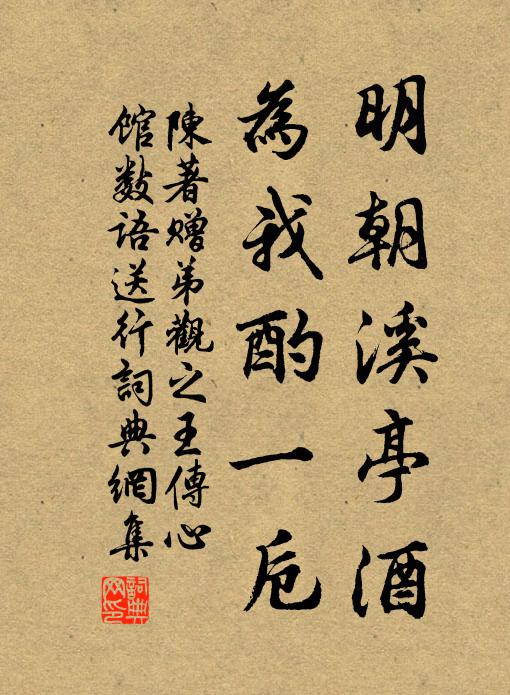 明朝溪亭酒
為我酌一卮
陳著贈弟觀之王傳心
館數語送行詞典網集
詞典网印